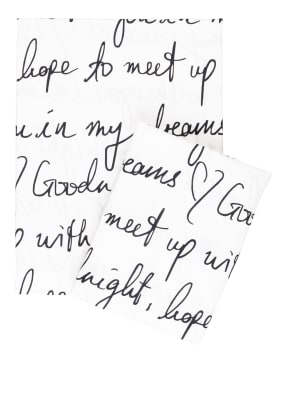 hope to meet up
u in my dreams
Goodn
eams ♡ Goo
meet up wi
with
night, hope